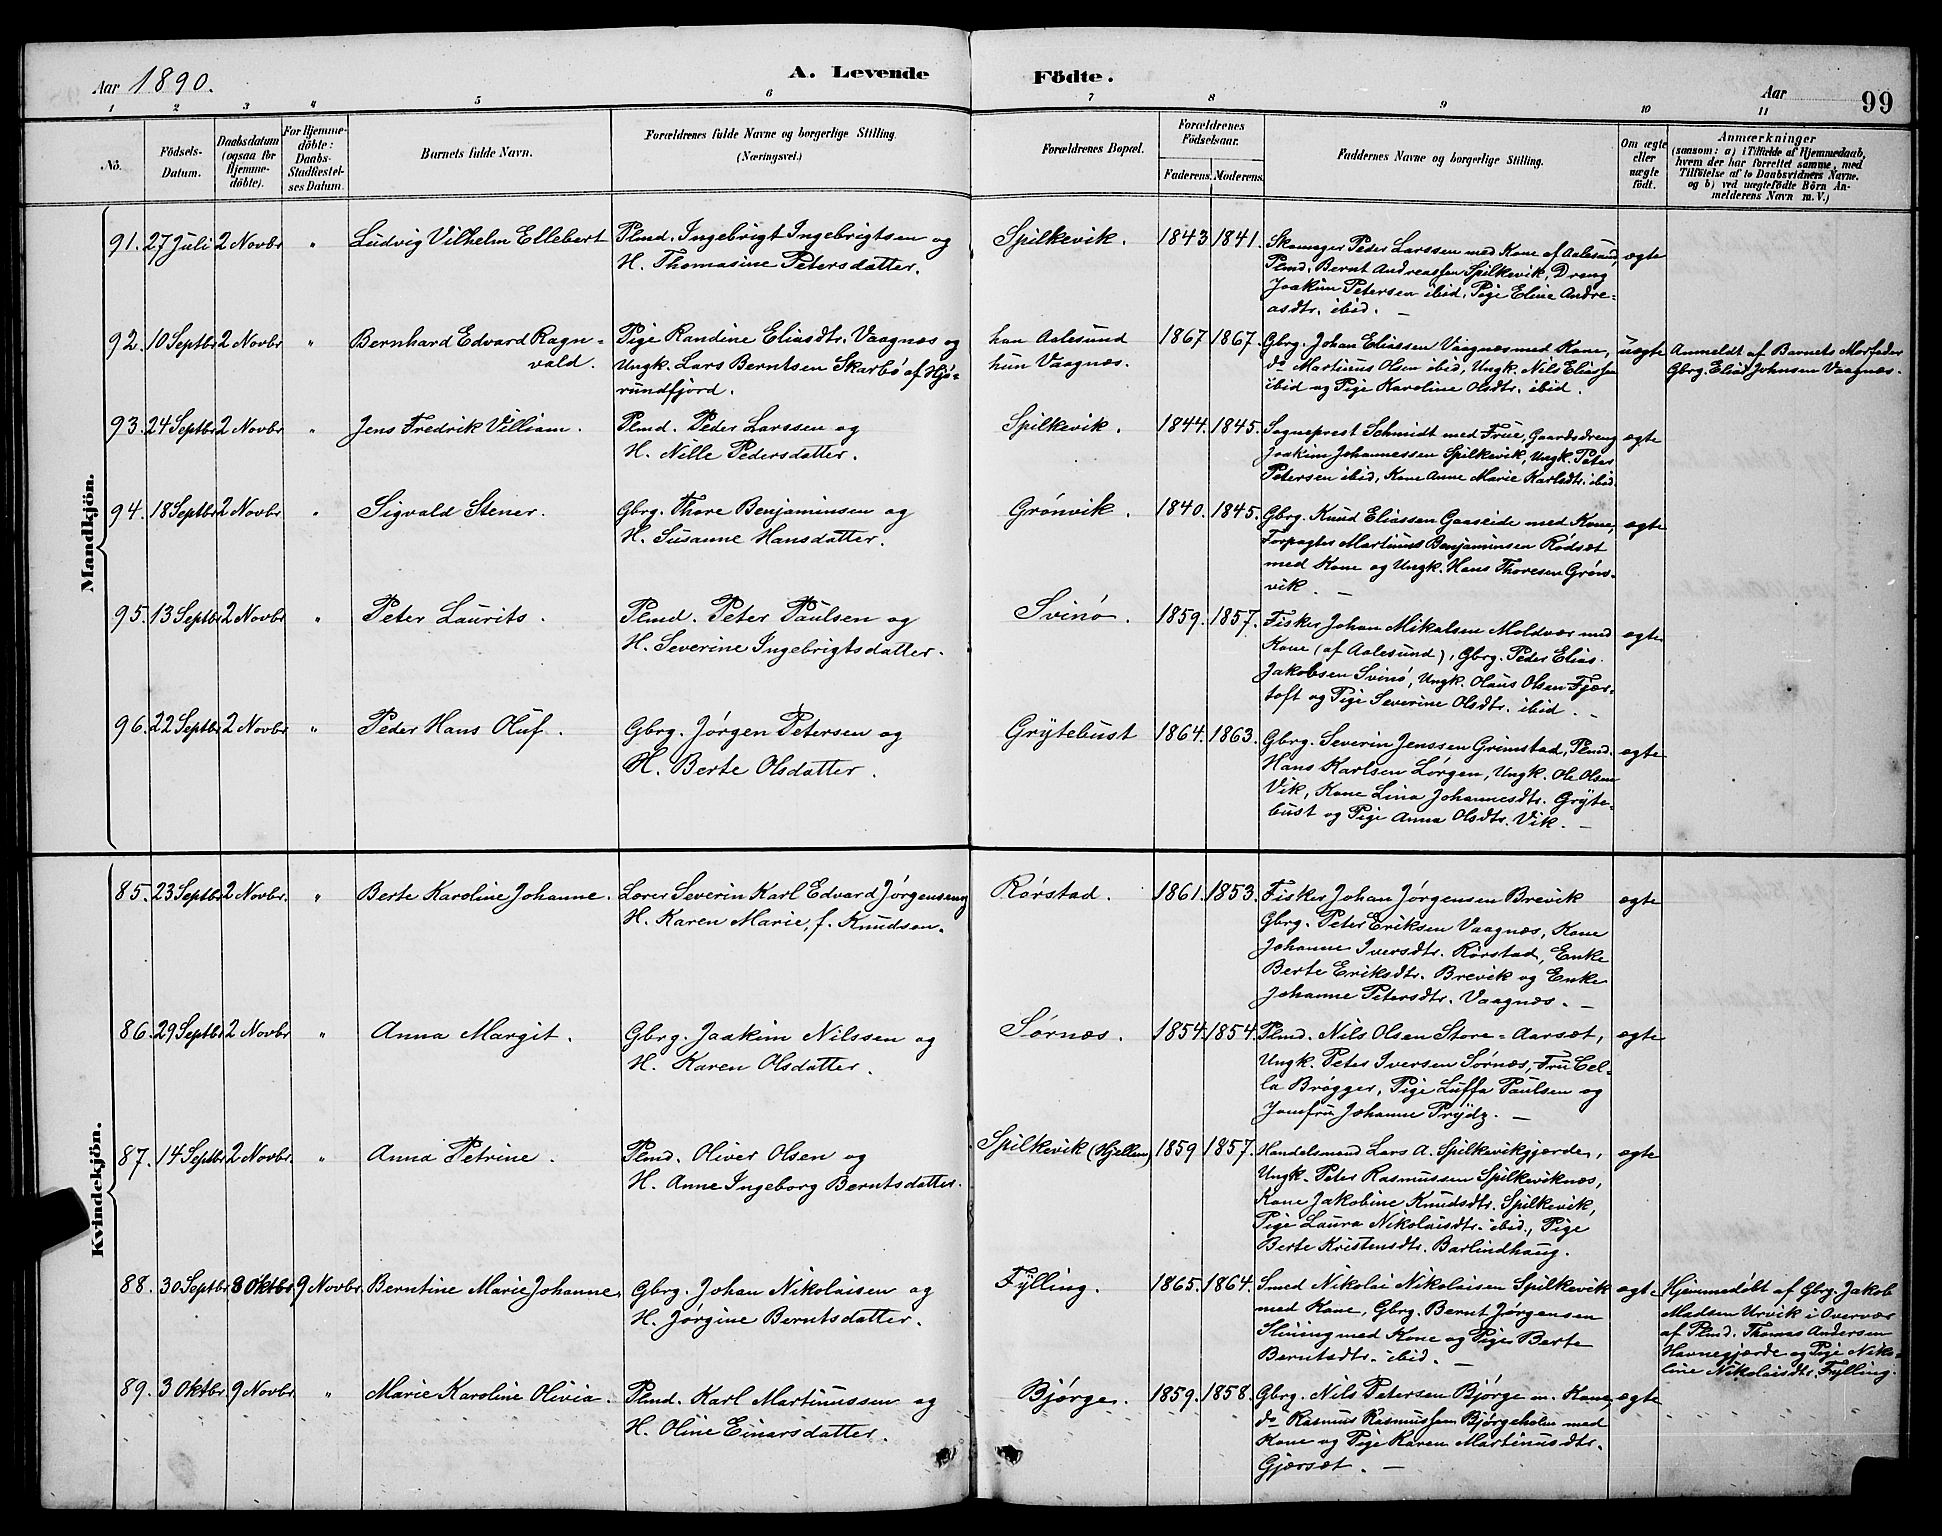 Aar 1890. A. Levende Födte. Aar 99
1 2 3 4 5 6 7 8 9 10 11
No.
Födsels-Datum.
Daabsdatum (ogsaa for Hjemme-döbte).
For Hjemme-döbte: Daabs-Stadfæstel-ses Datum.
Barnets fulde Navn.
Forældrenes fulde Navne og borgerlige Stilling. (Næringsvei.)
Forældrenes Bopæl.
Forældrenes Födselsaar.
Faderens. Moderens.
Faddernes Navne og borgerlige Stilling.
Om ægte eller uægte födt.
Anmærkninger
(saasom: a) i Tilfælde af Hjemmedaab, hvem der har forrettet samme, med Tilföielse af to Daabsvidners Navne. og b) ved uægtefödte Börn An-melderens Navn m. V.)
Mandkjön.
91. 27 Juli 2 Novbr " Ludvig Vilhelm Ellebert Plmd. Ingebrigt Ingebrigtsen og Spilkevik. 1843 1841. Skomager Peder Larssen med Kone af Aalesund, ægte
H. Thomasine Petersdatter. Plmd. Bernt Andreassen Spilkevik, Dreng
Joakim Petersen ibid, Pige Eline Andre=
asdtr. ibid. —
92. 10 Septbr 2 Novbr " Bernhard Edvard Ragn= Pige Randine Eliasdtr. Vaagnæs og han Aalesund 1867 1867. Gbrg. Johan Eliassen Vaagnæs med Kone, uægte Anmeldt af Barnets Morfader
vald. Ungk. Lars Berntsen Skarbø af Hjø= hun Vaagnæs. do Martinus Olsen ibid, Ungk. Nils Eliassen Gbrg. Elias Johnsen Vaagnæs.
rundfjord. ibid og Pige Karoline Olsdtr. ibid.
93. 24 Septbr 2 Novbr " Jens Fredrik Villiam. Plmd. Peder Larssen og Spilkevik. 1844. 1845. Sogneprest Schmidt med Frue, Gaardsdreng ægte
H. Nille Pedersdatter. Joakim Johannessen Spilkevik, Ungk. Peter
Petersen ibid, Kone Anne Marie Karlsdtr. ibid
94. 18 Septbr 2 Novbr " Sigvald Stener. Gbrg. Thore Benjaminsen og Grønvik. 1840. 1845. Gbrg. Knud Eliassen Gaaseide med Kone, ægte
H. Susanne Hansdatter. Forpagter Martinus Benjaminsen Rødsæt
med Kone og Ungk. Hans Thoresen Grøn-
vik. —
95. 13 Septbr 2 Novbr " Peter Laurits. Plmd. Peter Paulsen og Svinø. 1859. 1857. Fisker Johan Mikalsen Moldvær med ægte
H. Severine Ingebrigtsdatter. Kone (af Aalesund), Gbrg. Peder Elias
Jakobsen Svinø, Ungk. Olaus Olsen Fjør-
toft og Pige Severine Olsdtr. ibid. —
96. 22 Septbr 2 Novbr " Peder Hans Oluf. Gbrg. Jørgen Petersen og Grytebust 1864. 1863. Gbrg. Severin Jenssen Grimstad, Plmd. ægte
H. Berte Olsdatter. Hans Karlsen Lørgen, Ungk. Ole Olsen
Vik, Kone Lina Johannesdtr. Gryte-
bust og Pige Anna Olsdtr. Vik. —
Kvindekjön.
85. 23 Septbr 2 Novbr. " Berte Karoline Johanne. Lærer Severin Karl Edvard Jørgensen og Rørstad. 1861. 1853. Fisker Johan Jørgensen Brevik ægte
H. Karen Marie, f. Knudsen. Gbrg. Peter Eriksen Vaagnæs, Kone
Johanne Iversdtr. Rørstad, Enke
Berte Eriksdtr. Brevik og Enke
Johanne Petersdtr. Vaagnæs. —
86. 29 Septbr 2 Novbr " Anna Margit. Gbrg. Joakim Nilssen og Sørnæs. 1854. 1854. Plmd. Nils Olsen Store-Aarsæt, ægte
H. Karen Olsdatter. Ungk. Peter Iversen Sørnæs, Fru Cel-
la Brøgger, Pige Luffa Paulsen og
Jomfru Johanne Prydz. —
87. 14 Septbr 2 Novbr. " Anna Petrine. Plmd. Oliver Olsen og Spilkevik (Hjellen) 1859 1857. Handelsmand Lars A. Spilkevikgjerde, ægte
H. Anne Ingeborg Berntsdatter. Ungk. Peter Rasmussen Spilkeviknæs,
Kone Jakobine Knudsdtr. Spilkevik,
Pige Laura Nikolaisdtr. ibid, Pige
Berte Kristensdtr. Barlindhaug.
88. 30 Septbr 8 Oktbr 9 Novbr. Berntine Marie Johanne. Gbrg. Johan Nikolaisen og Fylling. 1865. 1864. Smed Nikolai Nikolaisen Spilkevik ægte Hjemmedøbt af Gbrg. Jakob
H. Jørgine Berntsdatter. med Kone, Gbrg. Bernt Jørgensen Madsen Urvik i Overvær
Slining med Kone og Pige Berte af Plmd. Thomas Andersen
Berntsdtr. ibid. — Havnegjærde og Pige Niko-
line Nikolaisdtr. Fylling.
89. 3 Oktbr. 9 Novbr. " Marie Karoline Olivia. Plmd. Karl Martinussen og Bjørge. 1859. 1858. Gbrg. Nils Petersen Bjørge m. Kone, ægte
H. Oline Einarsdatter. do Rasmus Rasmussen Bjørgeholm med
Kone og Pige Karen Martinusdtr.
Gjærsæt. —